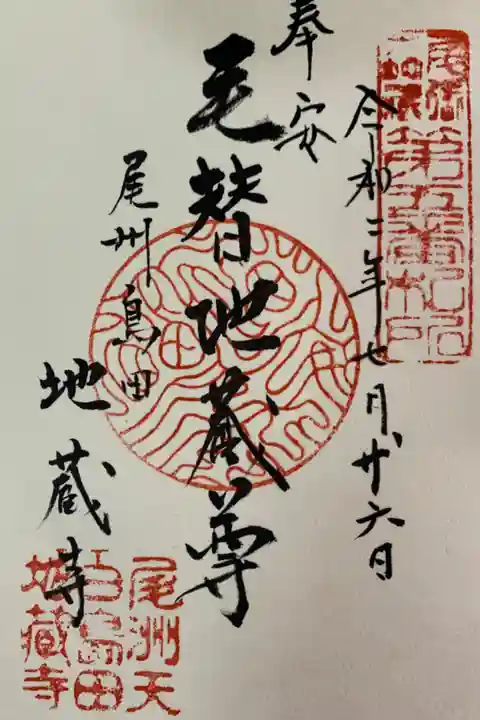 第五番札所
令和二年七月廿六日
奉安
毛替地蔵尊
尾州島田
地蔵寺
尾洲天
白島田
地蔵寺